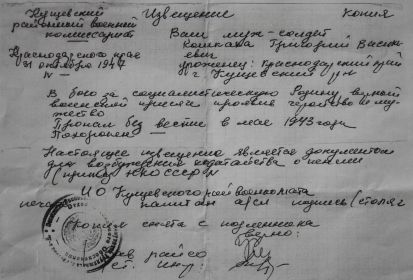 Кущевский Извещение копия
районный военный
комиссариат Ваш муж - солдат
Григорий Василь
Краснодарского края евич
31 октября 1947 уроженец: Краснодарский край
IV — Кущевский р/н
В бою за социалистическую Родину, верный
воинской присяге, проявив геройство и му-
жество
Пропал без вести в мае 1943 года
Похоронен —
Настоящее извещение является документом
для возбуждения ходатайства пенсии
(приказ НКО СССР №
И О Кущевского райвоенкомата
капитан а/сл подпись (
копия снята с подлинника
верно:
зав райсо
ст. инсп.